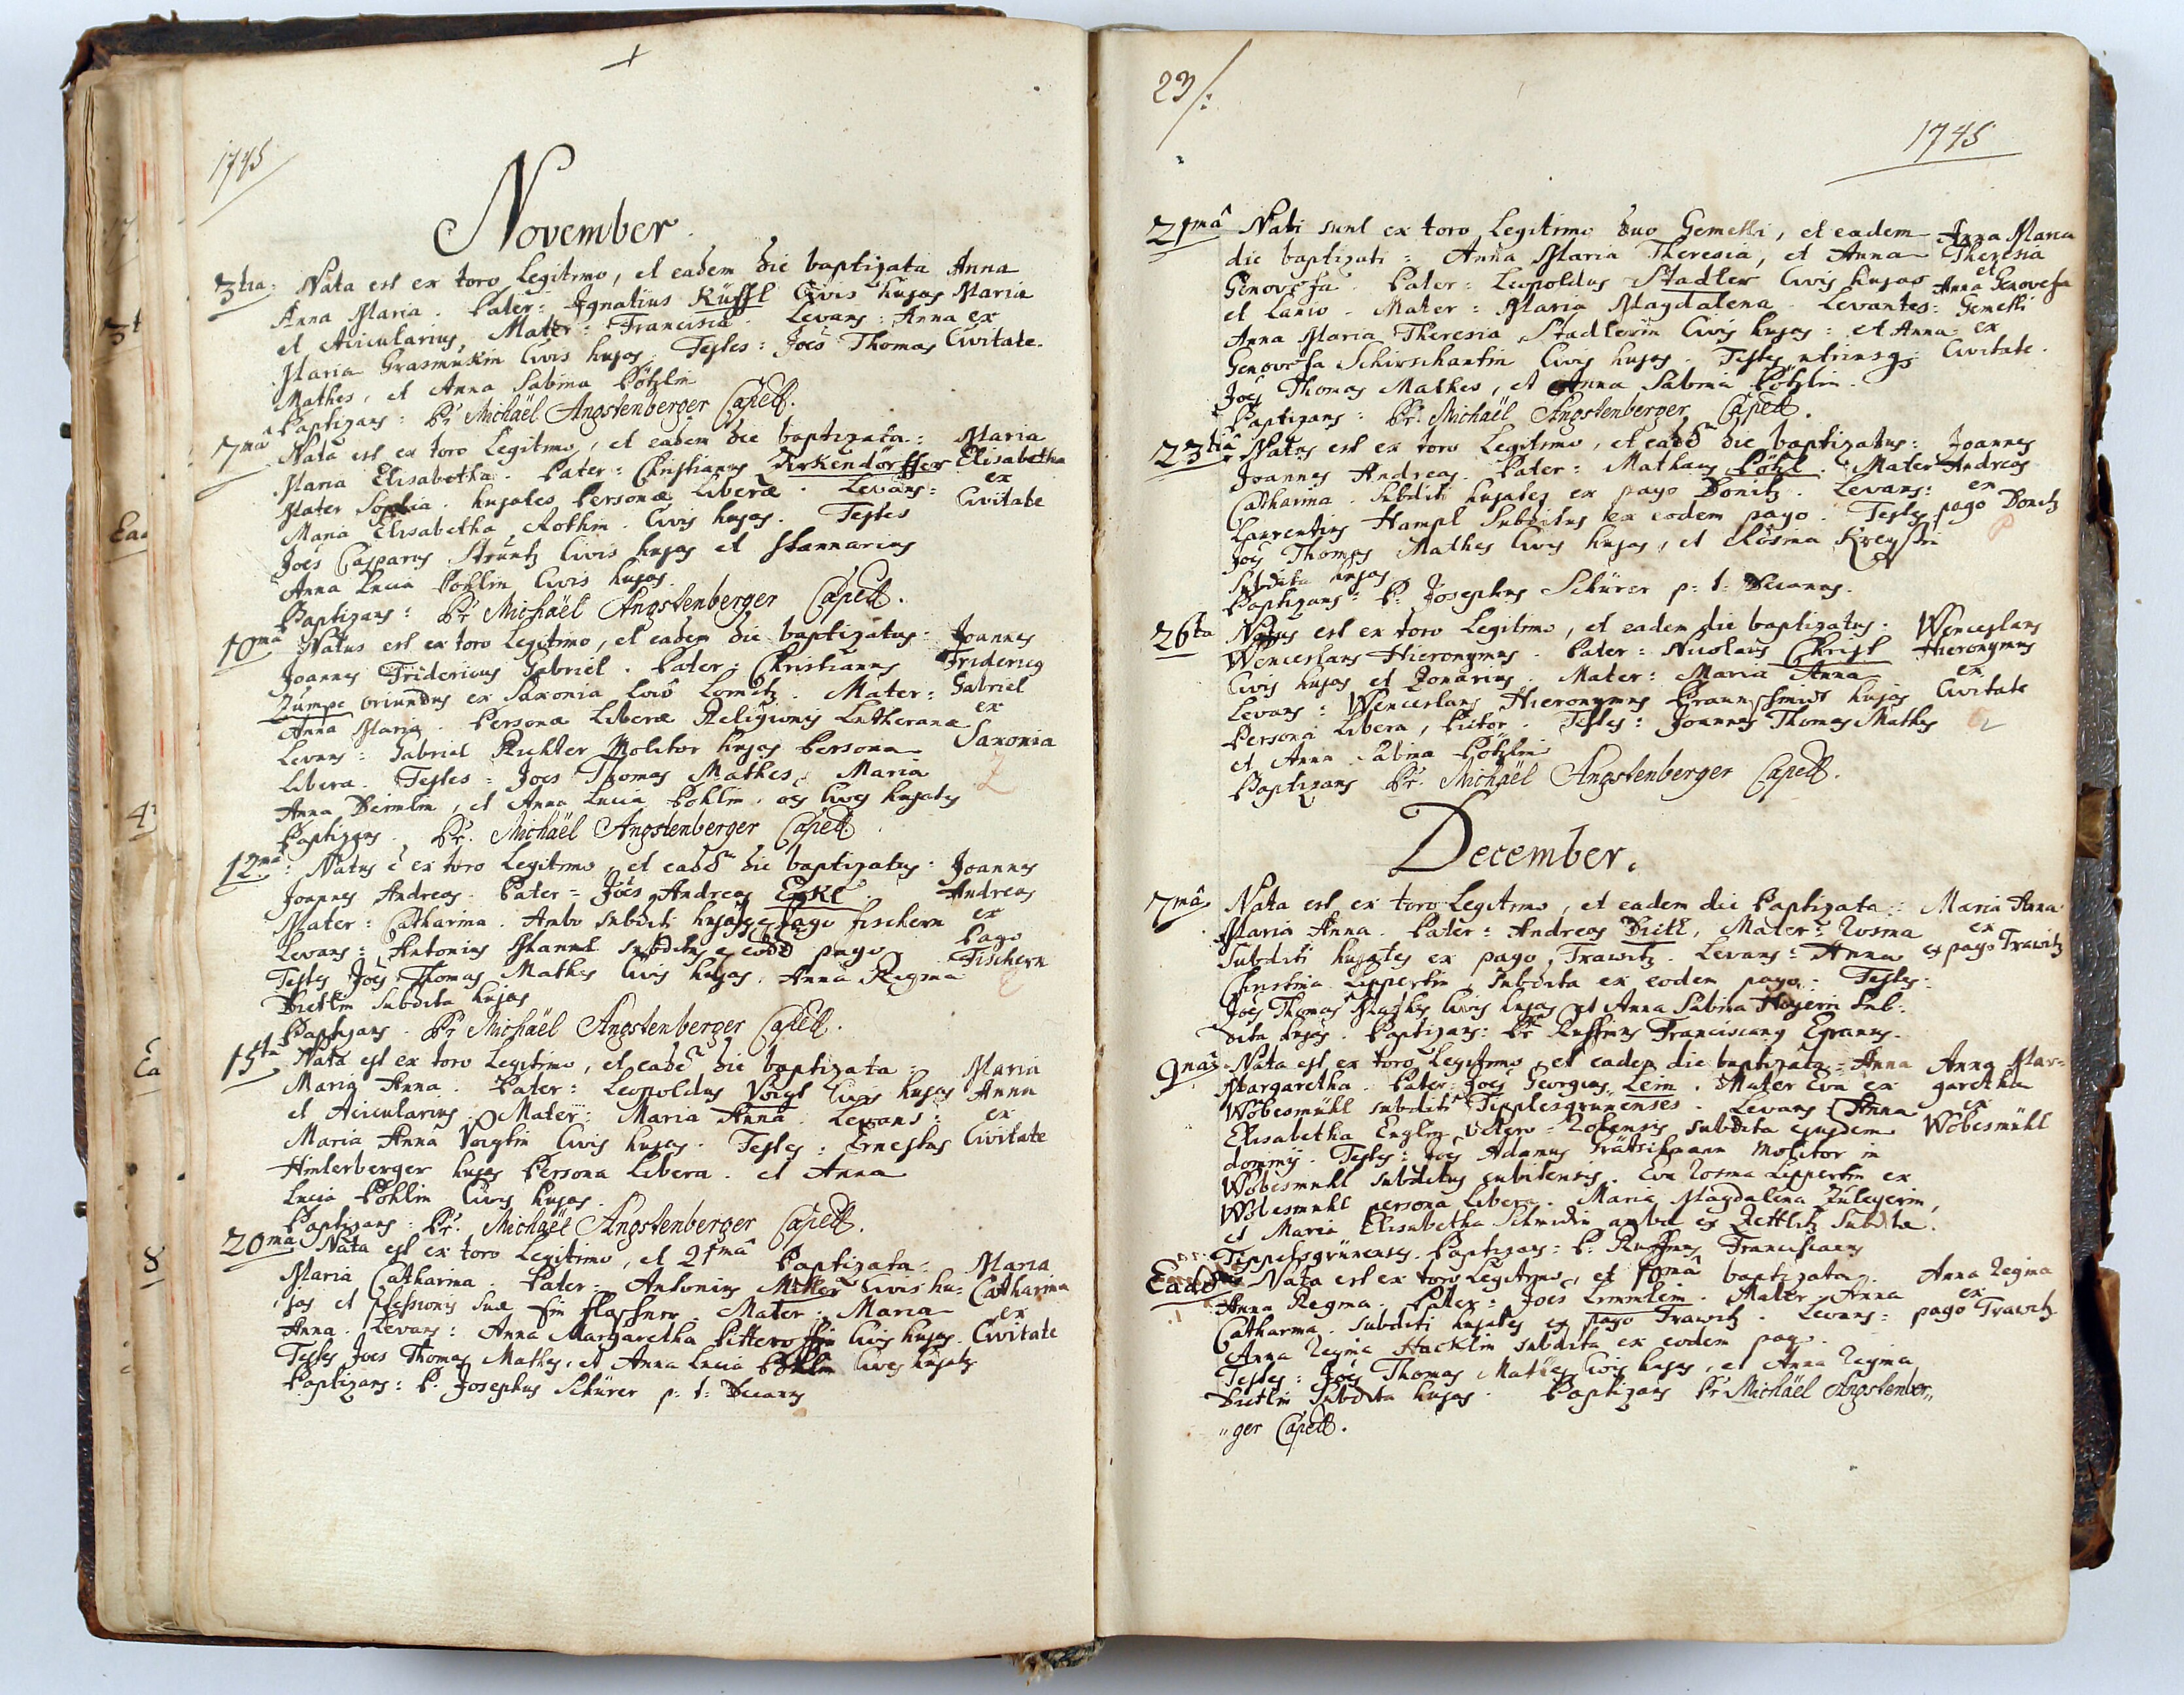 1745
November
3tia: Nata est ex toro Legitimo, et eadem die baptizata Anna
Anna Maria. Pater: Ignatius Küffl Civis hujas Maria
et Acicularius, Mater: Francisca. Levans: Anna ex
Maria Grasmükin Civis hujas. Testes: Joês Thomas Civitate.
Mathes, et Anna Sabina Pötzlin
Baptizans: Pr. Michaël Angstenberger Capell.
7mâ Nata est ex toro Legitimo, et eadem die baptizata: Maria
Maria Elisabetha. Pater: Christianus Dirkendörffer Elisabetha
Mater Sophia. hujates Personæ Liberæ. Levans: ex
Maria Elisabetha Rothin. Civis hujas. Testes Civitate
Joês Casparus Strüntz Civis hujas et stannarius
Anna Lucia Pöhlin Civis hujas.
Baptizans: Pr. Michaël Angstenberger Capell.
10mâ Natus est ex toro Legitimo, et eadem die baptizatus: Joannes
Joannes Fridericus Gabriel. Pater: Christianus Fridericus
Zumpe oriundus ex Saxonia loco Lomitz. Mater: Gabriel
Anna Maria. Personæ Liberæ Religionis Lutherana ex
Levans: Gabriel Richter Molitor hujas Persona Saxonia
Libera. Testes: Joes Thomas Mathes, Maria
Anna Deimlin, et Anna Lucia Pöhlin. oês Cives hujates
Baptizans. Pr. Michaël Angstenberger Capell.
12mâ: Natus ê ex toro Legitimo, et eadd die baptizatus: Joannes
Joannes Andreas. Pater: Joês Andreas Enkl Andreas
Mater: Catharina. Ambo subditi hujates e Pago fischern ex
Levans: Antonius Mannl subditus e eodd pago Pago
Testes Joês Thomas Mathes Civis hujas. Anna Regina Fischern
Dietlin Subdita hujas
Baptizans. Pr Michaël Angstenberger Capell.
15ta Nata est ex toro Legitimo, et eadê die baptizata: Maria
Maria Anna. Pater: Leopoldus Voigt Civis hujas Anna
et Acicularius. Mater: Maria Anna. Levans: ex
Maria Anna Voigtin Civis hujas. Testes: Ernestus Civitate
Hinterberger hujas Persona Libera. et Anna
Lucia Pöhlin Civis hujas.
Baptizans: Pr. Michaël Angstenberger Capell.
20mâ Nata est ex toro Legitimo, et 21mâ Baptizata: Maria
Maria Catharina. Pater: Antonius Miller Civis hu= Catharina
jas et pfessionis suæ ein flaschner Mater: Maria ex
Anna. Levans: Anna Margaretha Pitteroffin Civis hujas. Civitate
Testes Joes Thomas Mathes, et Anna Lucia Pöhlin Cives hujates
Baptizans: P. Josephus Schürer p: t: Decanus
23/:
1745
21mâ Nati sunt ex toro Legitimo duo Gemelli, et eadem Anna Maria
die baptizati: Anna Maria Theresia, et Anna Theresia
Genovefa. Pater: Leopoldus Stadler Civis hujas et
et Lanio. Mater: Maria Magdalena. Levantes: Anna Genovefa
Anna Maria Theresia Stadlerin Civis hujas: et Anna Gemelli
Genovefa Schirschantin Civis hujas. Testes utriusqs ex
Joês Thomas Mathes, et Anna Sabina Pötzlin. Civitate.
Baptizans: Pr. Michaël Angstenberger Capell.
23tiâ Natus est ex toro Legitimo, et eadd die baptizatus: Joannes
Joannes Andreas. Pater: Mathæus Pötzl. Mater Andreas
Catharina. Subditi hujates ex pago Donitz. Levans: ex
Laurentius Hampl Subditus ex eodem pago. Testes pago Donitz
Joês Thomas Mathes Civis hujas, et Rosina
Subdita hujas
Baptizans: P. Josephus Schürer p: t: Decanus.
26ta Natus est ex toro Legitimo, et eadem die baptizatus. Wenceslaus
Wenceslaus Hieronymus. Pater: Nicolaus Christ Hieronymus
Civis hujas et Zonarius. Mater: Maria Anna ex
Levans: Wenceslaus Hieronymus Braunschmidt hujas Civitate
Persona Libera, Pictor. Testes: Joannes Thomas Mathes
et Anna Sabina Pötzlin
Baptizans Pr. Michaël Angstenberger Capell.
December.
7mâ Nata est ex toro Legitimo, et eadem die Baptizata: Maria Anna
Maria Anna. Pater: Andreas Dietl, Mater: Rosina ex
Subditi hujates ex pago Trawitz. Levans: Anna pago Trawitz
Christina Lippertin, Subdita ex eodem pago. Testes:
Joês Thomas Mathes Civis hujas et Anna Sabina Hoyerin Sub:
dita hujas. Baptizans: Pr Ruffinus Franciscanus Egranus.
9nâ: Nata est ex toro Legitimo, et eadem die baptizata Anna Anna Mar=
Margaretha. Pater: Joês Georgius Lein. Mater Eva ex garetha
Wobesmühl subditi Tipplesgrünenses. Levans Anna ex
Elisabetha Englin Vetero=Rolensis subdita ejusdem Wobesmühl
dominij. Testes: Joês Adamus Trätschmann Molitor in
Wobesmühl subditus cubitensis. Eva Rosina Lippertin ex
Wobesmühl persona libera. Maria Magdalena Zulegerin,
et Maria Elisabetha Schmidin ambæ ex Zettlitz Subditæ
Tippelsgrünenses. Baptizans: P: Ruffinus Franciscanus
Eadd Nata est ex toro Legitimo, et 10mâ baptizata. Anna Regina
Anna Regina. Pater: Joês Limmlein. Mater Anna ex
Catharina. Subditi hujates ex pago Trawitz. Levans: pago Trawitz
Anna Regina Hacklin Subdita ex eodem pago.
Testes: Joês Thomas Mathes Civis hujas, et Anna Regina
Dietlin Subdita hujas. Baptizans Pr Michaël Angstenber„
„ger Capell.